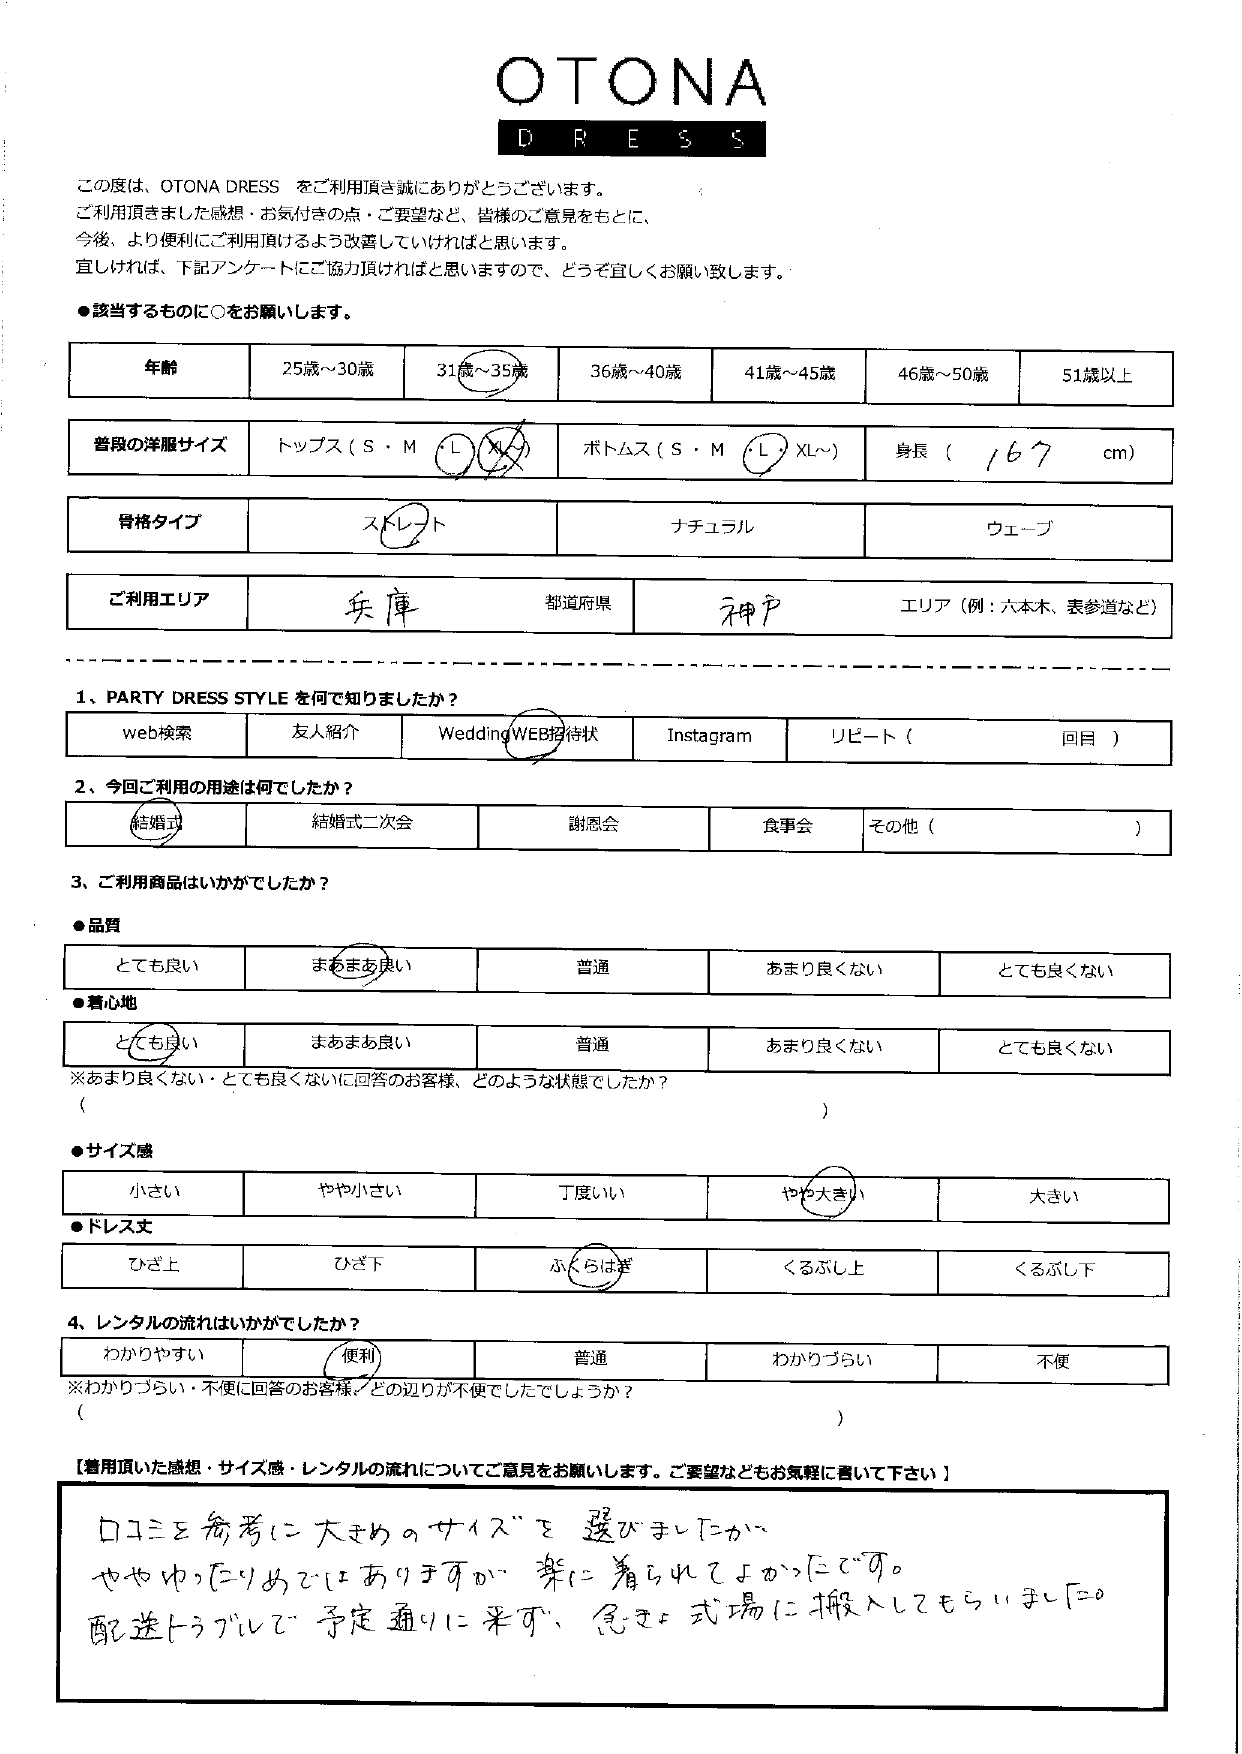 OTONA
DRESS
この度は、OTONA DRESS　をご利用頂き誠にありがとうございます。
ご利用頂きました感想・お気付きの点・ご要望など、皆様のご意見をもとに、
今後、より便利にご利用頂けるよう改善していければと思います。
宜しければ、下記アンケートにご協力頂ければと思いますので、どうぞ宜しくお願い致します。
●該当するものに○をお願いします。
年齢 25歳～30歳 31歳～35歳 36歳～40歳 41歳～45歳 46歳～50歳 51歳以上
普段の洋服サイズ トップス ( S ・ M ・L ・ XL～) ボトムス ( S ・ M ・L・ XL～) 身長 （ 167 cm）
骨格タイプ ストレート ナチュラル ウェーブ
ご利用エリア 兵庫 都道府県 神戸 エリア（例：六本木、表参道など）
1、PARTY DRESS STYLE を何で知りましたか？
web検索 友人紹介 WeddingWEB招待状 Instagram リピート（ 回目 ）
2、今回ご利用の用途は何でしたか？
結婚式 結婚式二次会 謝恩会 食事会 その他（ ）
3、ご利用商品はいかがでしたか？
●品質
とても良い まあまあ良い 普通 あまり良くない とても良くない
●着心地
とても良い まあまあ良い 普通 あまり良くない とても良くない
※あまり良くない・とても良くないに回答のお客様、どのような状態でしたか？
（ ）
●サイズ感
小さい やや小さい 丁度いい やや大きい 大きい
●ドレス丈
ひざ上 ひざ下 ふくらはぎ くるぶし上 くるぶし下
4、レンタルの流れはいかがでしたか？
わかりやすい 便利 普通 わかりづらい 不便
※わかりづらい・不便に回答のお客様、どの辺りが不便でしたでしょうか？
（ ）
【着用頂いた感想・サイズ感・レンタルの流れについてご意見をお願いします。ご要望などもお気軽に書いて下さい 】
口コミを参考に大きめのサイズを選びましたが
ややゆったりめではありますが楽に着られてよかったです。
配送トラブルで予定通りに来ず、急きょ式場に搬入してもらいました。